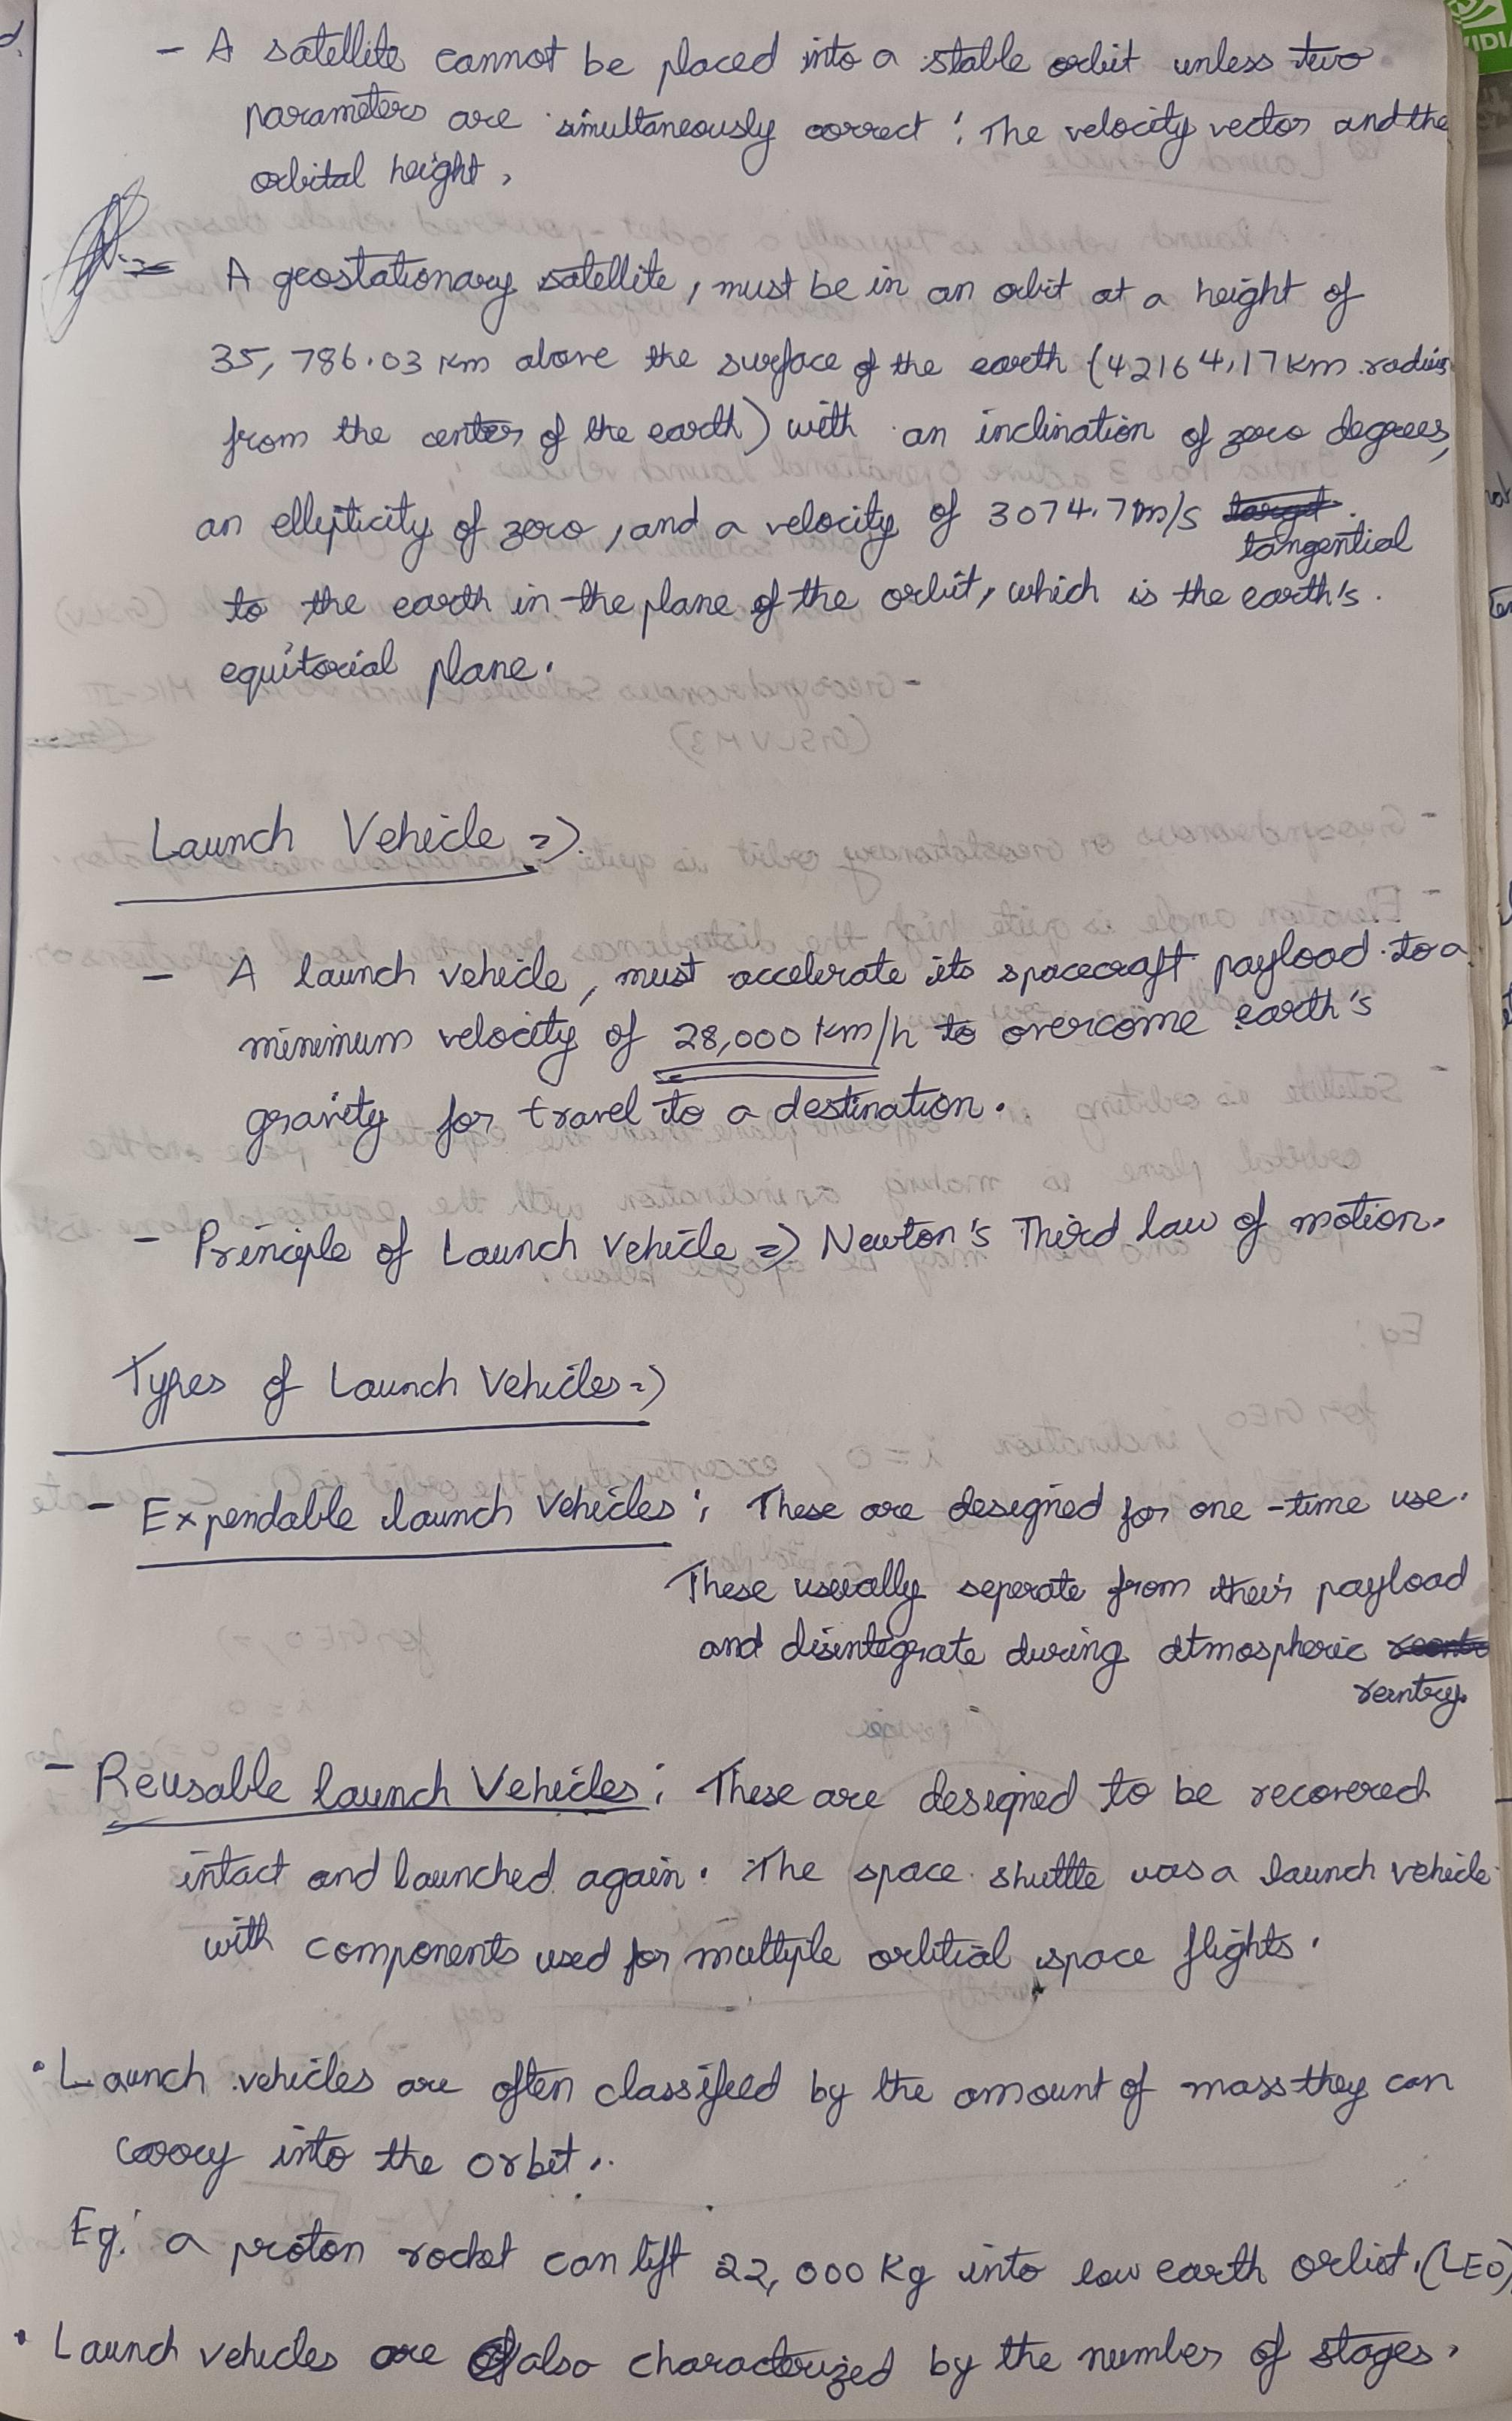 - A satellite cannot be placed into a stable orbit unless two
parameters are simultaneously correct : The velocity vector and the
orbital height,
- A geostationary satellite, must be in an orbit at a height of
35,786.03 km above the surface of the earth (42164.17 km radius
from the center of the earth) with an inclination of zero degrees,
an ellipticity of zero, and a velocity of 3074.7 m/s
tangential
to the earth in the plane of the orbit, which is the earth's
equitorial plane.
Launch Vehicle =>
- A launch vehicle, must accelerate its spacecraft payload to a
minimum velocity of 28,000 km/h to overcome earth's
gravity for travel to a destination.
- Principle of Launch Vehicle => Newton's Third law of motion.
Types of Launch Vehicles =>
- Expendable launch Vehicles : These are designed for one-time use.
These usually seperate from their payload
and disintegrate during atmospheric
reentry.
- Reusable launch Vehicles : These are designed to be recovered
intact and launched again. The space shuttle was a launch vehicle
with components used for multiple orbitial space flights.
• Launch vehicles are often classified by the amount of mass they can
carry into the orbit.
Eg: a proton rocket can lift 22,000 Kg into low earth orbit. (LEO)
• Launch vehicles are also characterized by the number of stages.